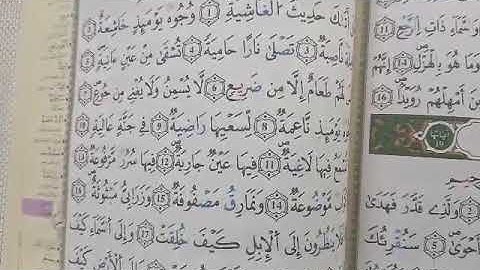 أَتَىٰكَ حَدِيثُ الْغَاشِيَةِ ١ وُجُوهٌ يَوْمَئِذٍ خَاشِعَةٌ ٢
نَّاصِبَةٌ ٣ تَصْلَىٰ نَارًا حَامِيَةً ٤ تُسْقَىٰ مِنْ عَيْنٍ ءَانِيَةٍ ٥
لَهُمْ طَعَامٌ إِلَّا مِن ضَرِيعٍ ٦ لَّا يُسْمِنُ وَلَا يُغْنِي مِن جُوعٍ ٧
يَوْمَئِذٍ نَّاعِمَةٌ ٨ لِّسَعْيِهَا رَاضِيَةٌ ٩ فِي جَنَّةٍ عَالِيَةٍ ١٠
تَسْمَعُ فِيهَا لَاغِيَةً ١١ فِيهَا عَيْنٌ جَارِيَةٌ ١٢ فِيهَا سُرُرٌ مَّرْفُوعَةٌ ١٣
مَّوْضُوعَةٌ ١٤ وَنَمَارِقُ مَصْفُوفَةٌ ١٥ وَزَرَابِيُّ مَبْثُوثَةٌ ١٦
يَنظُرُونَ إِلَى الْإِبِلِ كَيْفَ خُلِقَتْ ١٧ وَإِلَى السَّمَاءِ كَيْفَ
كَيْفَ
وَالسَّمَاءِ ذَاتِ الرَّجْعِ ١١
وَمَا هُوَ بِالْهَزْلِ ١٤ إِنَّهُمْ
أَمْهِلْهُمْ رُوَيْدًا
وَالَّذِي قَدَّرَ فَهَدَىٰ
أَحْوَىٰ ٥ سَنُقْرِئُكَ